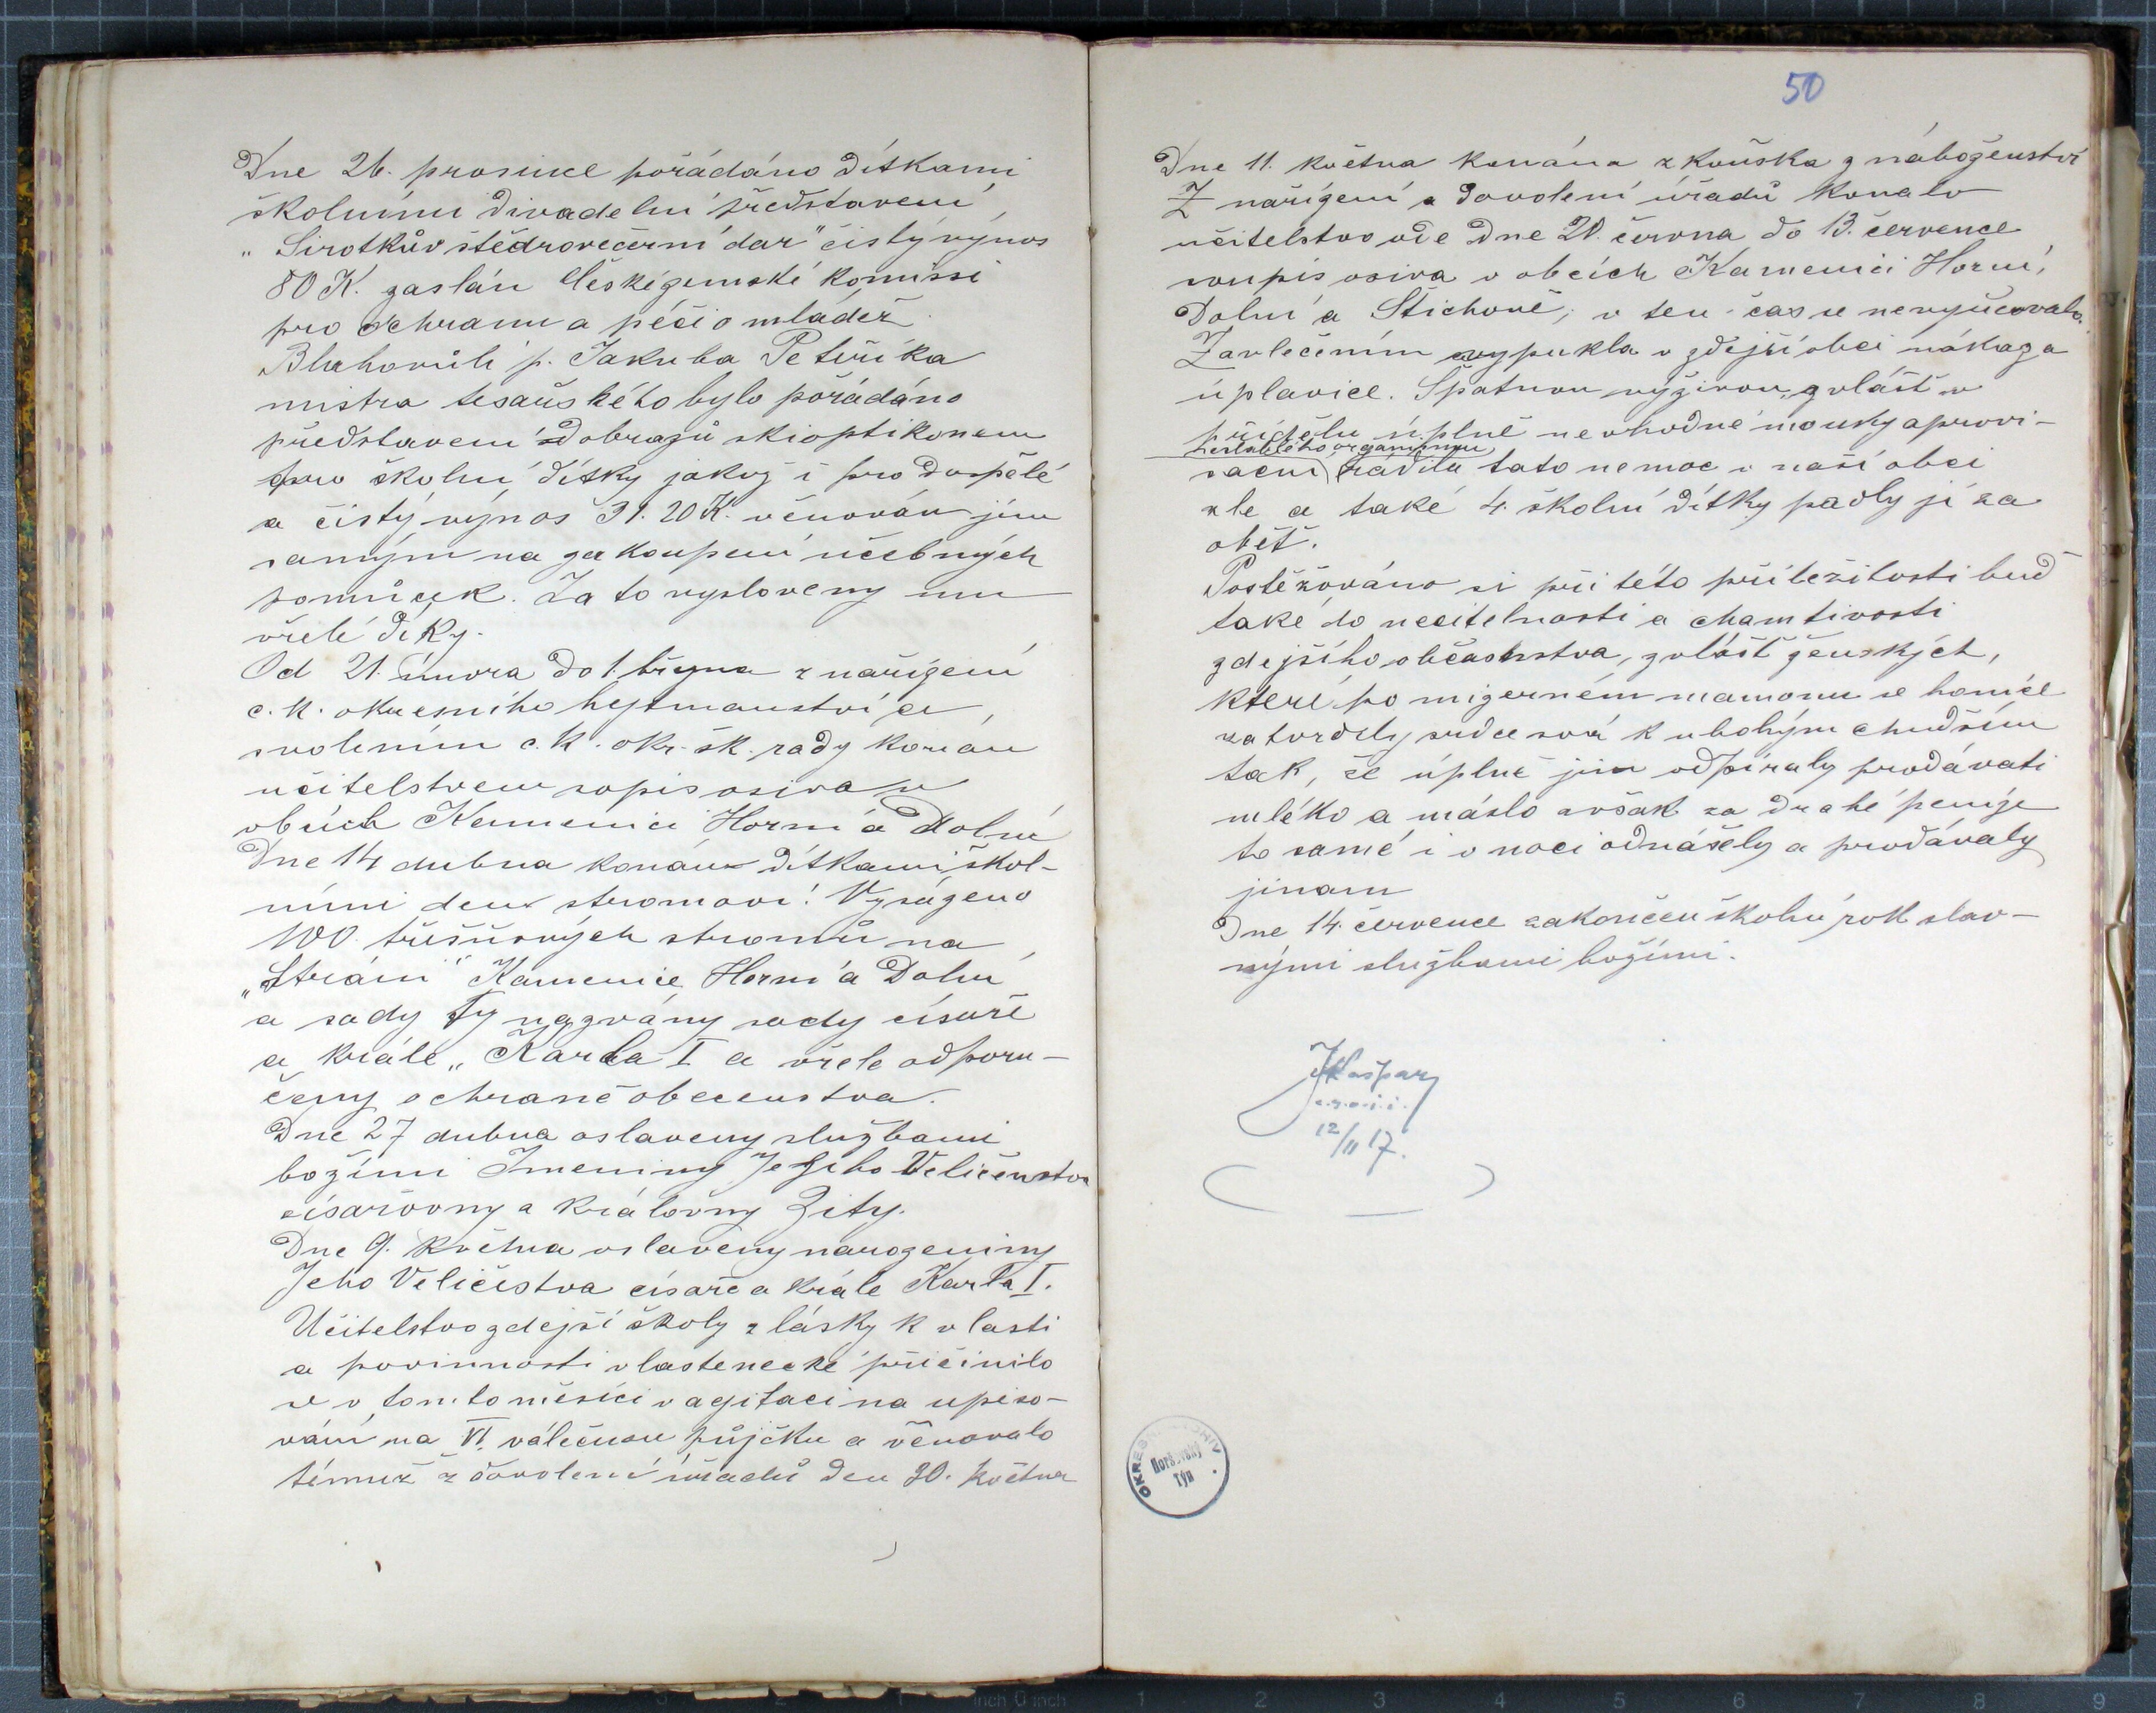 Dne 26. prosince pořádáno dítkami
školními divadelní představení
„Sirotkův štědrovečerní dar" čistý výnos
80 K. zaslán České zemské komissi
pro ochranu a péči o mládež.
Blahovůlí p. Jakuba Petříka
mistra tesařského bylo pořádáno
představení obrazů skioptikonem
pro školní dítky jakož i pro dospělé
a čistý výnos 31.20 K. věnován jim
samým na zakoupení učebných
pomůcek. Za to vysloveny mu
vřelé díky.
Od 21. února do 1. března z nařízení
c. k. okresního hejtmanství a
svolením c. k. okr. šk. rady konán
učitelstvem sopis osiva v
obcích Kamenici Horní a Dolní
Dne 14 dubna konán dítkami škol-
ními den stromoví. Vysázeno
100 třešňových stromů na
„Stráni" Kamenice Horní a Dolní
a sady ty nazvány sady císaře
a krále „Karla I a vřele odporu-
čeny ochraně obecenstva.
Dne 27 dubna oslaveny službami
božími Jmeniny Jejího Veličenstva
císařovny a královny Zity.
Dne 9. května oslaveny narozeniny
Jeho Veličestva císaře a krále Karla I.
Učitelstvo zdejší školy z lásky k vlasti
a povinnosti vlastenecké přičinilo
se v tomto měsíci v agitaci na upiso-
vání na VI. válečnou půjčku a věnovalo
témuž z dovolení úřadů den 30. května
50
Dne 11. května konána zkouška z náboženství
Z nařízení a dovolení úřadů konalo
učitelstvo ode dne 20. června do 13. července
soupis osiva v obcích Kamenici Horní,
Dolní a Štichově; v ten čas se nevyučovalo.
Zavlečením vypukla v zdejší obci nákaza
úplavice. Špatnou výživou, zvlášť v
přídělu úplně nevhodné mouky aprovi-
organismu
sační řádila tato nemoc v naší obci
zle a také 4. školní dítky padly jí za
oběť.
Postěžováno si při této příležitosti buď
také do necitelnosti a chamtivosti
zdejšího občanstva, zvlášť ženských,
které po mizerném mamonu se honíce
zatvrdily srdce svá k ubohým chudším
tak, že úplně jim odpíraly prodávati
mléko a máslo avšak za drahé peníze
to samé i v noci odnášely a prodávaly
jinam
Dne 14. července zakončen školní rok slav-
nými službami božími.
JKašpar
12/II 17.
OKRESNÍ ARCHIV
Horšovský
Týn